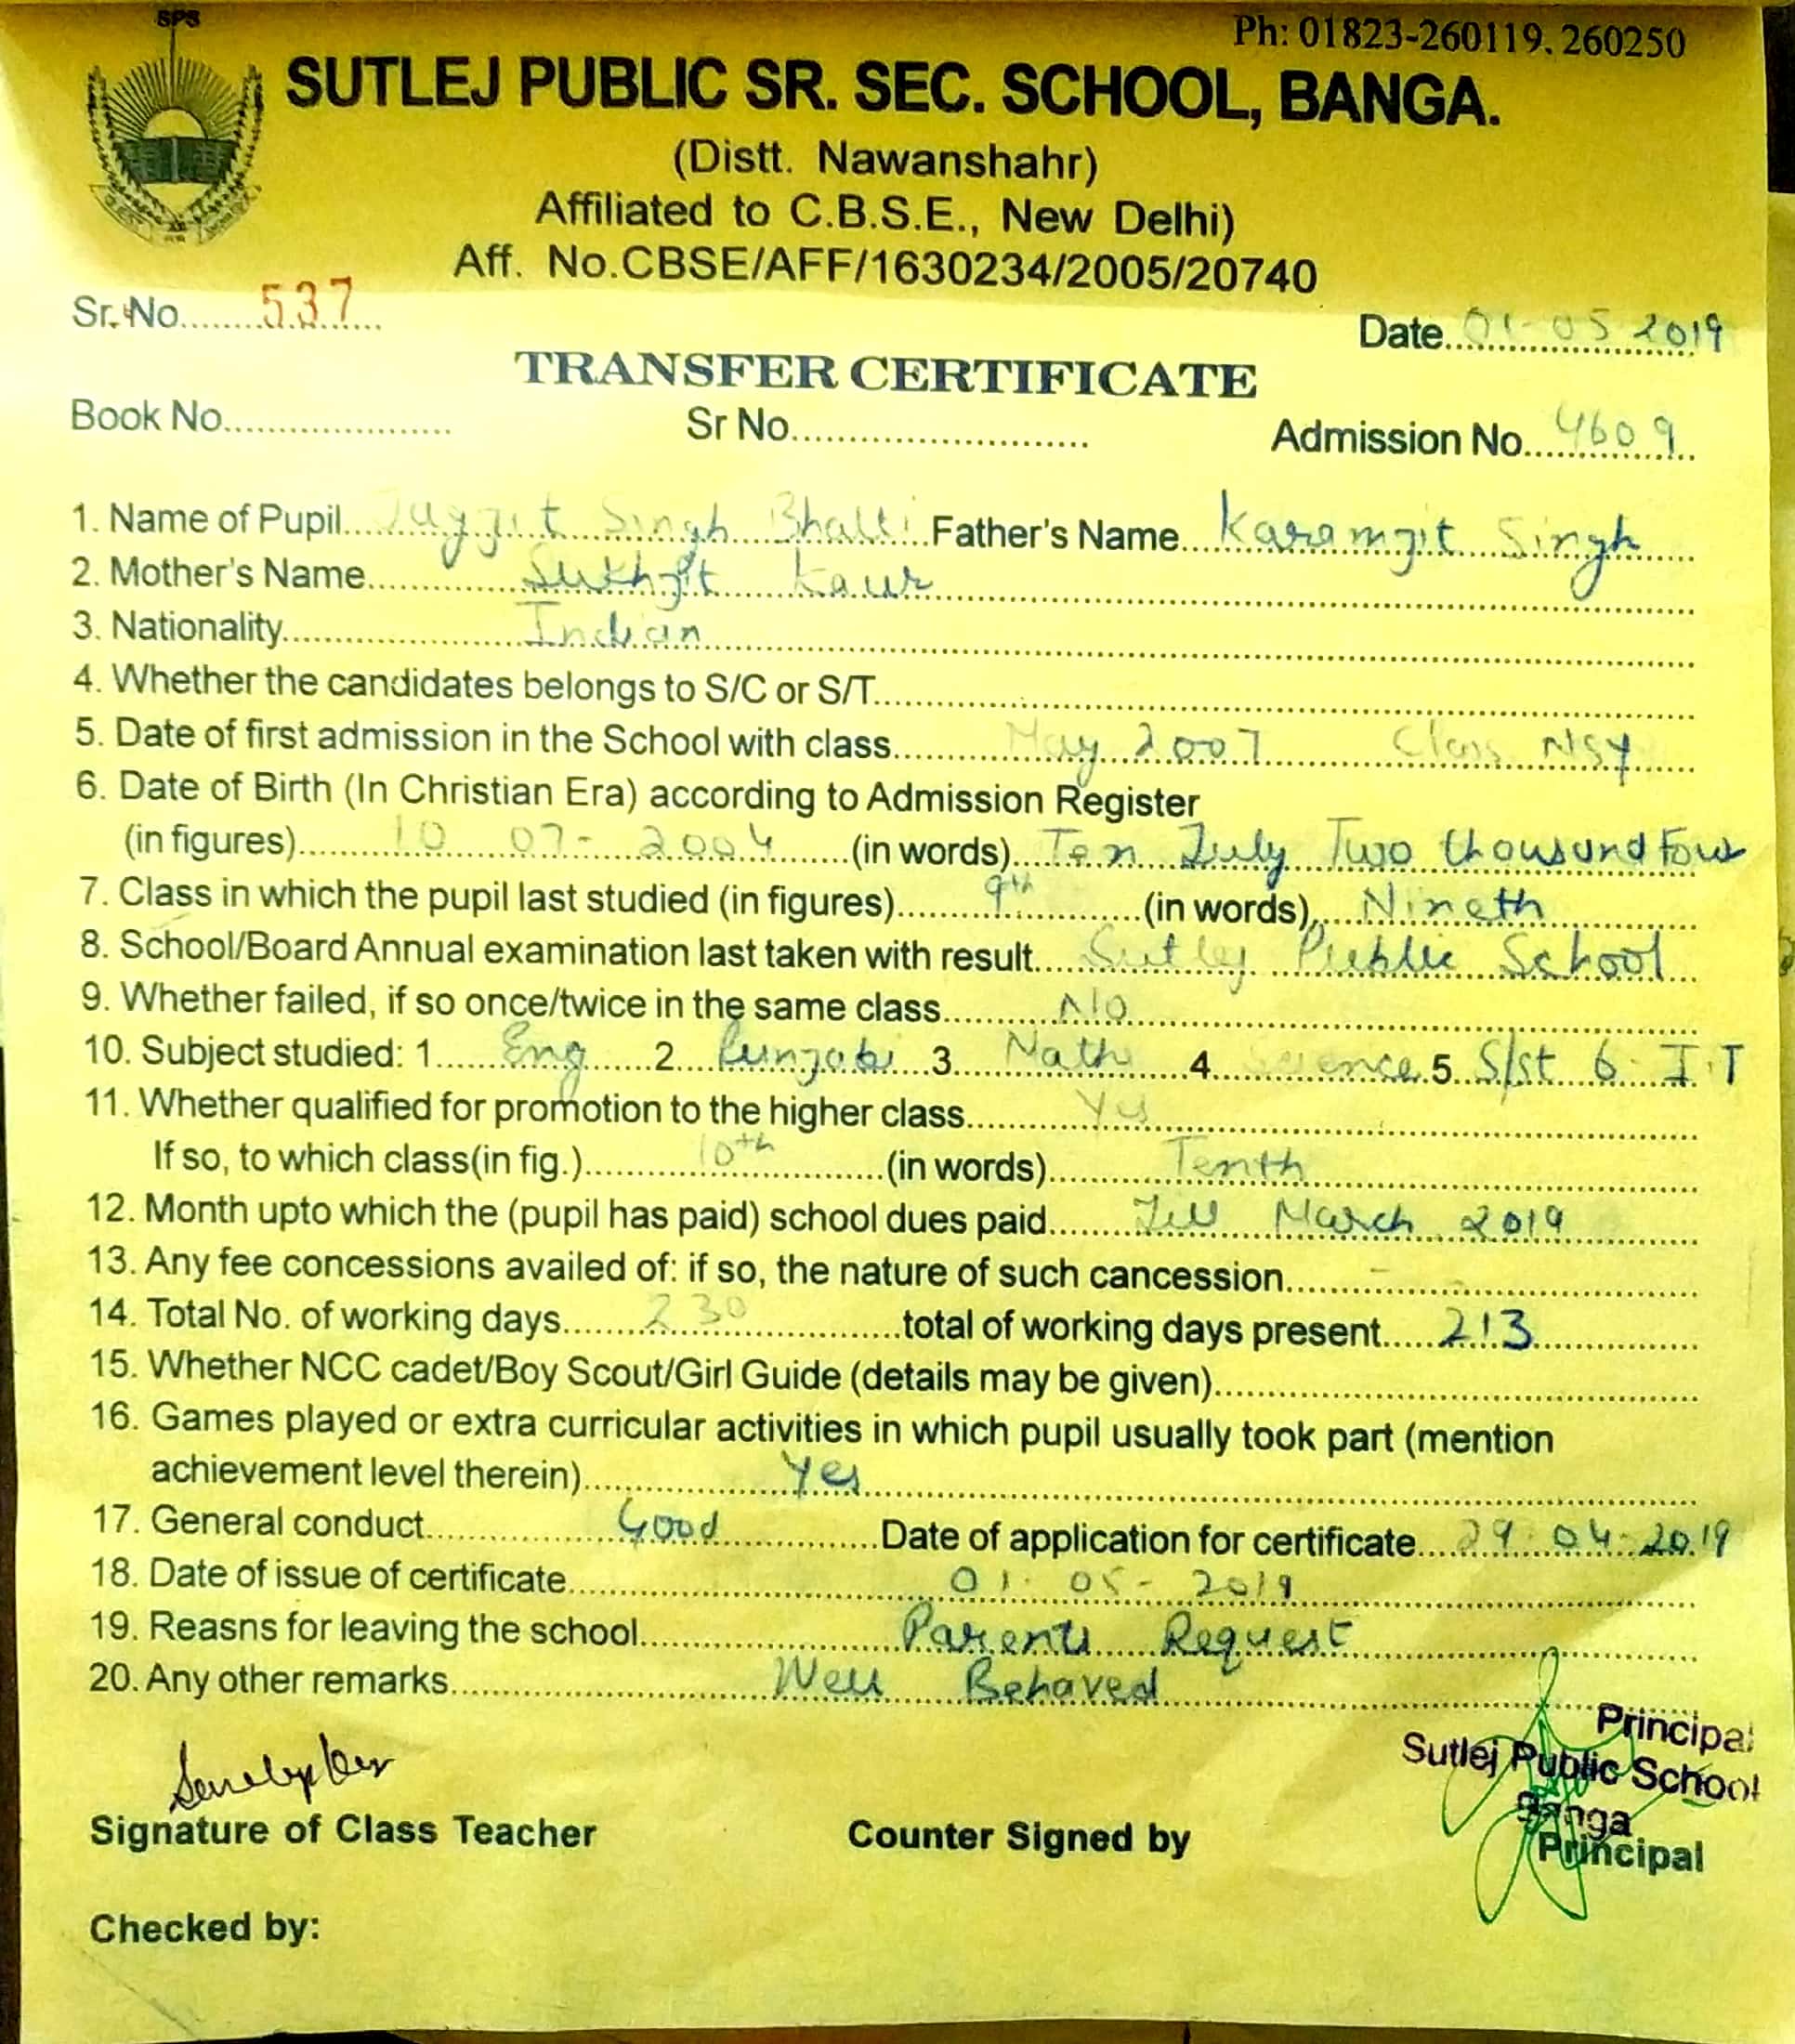 SPS
Ph: 01823-260119. 260250
SUTLEJ PUBLIC SR. SEC. SCHOOL, BANGA.
(Distt. Nawanshahr)
Affiliated to C.B.S.E., New Delhi)
Aff. No.CBSE/AFF/1630234/2005/20740
Sr. No. 537
Date 01-05 2019
TRANSFER CERTIFICATE
Book No. Sr No. Admission No. 4609
1. Name of Pupil Jagjit Singh Bhatti Father's Name Karamjit Singh
2. Mother's Name Sukhjit Kaur
3. Nationality Indian
4. Whether the candidates belongs to S/C or S/T
5. Date of first admission in the School with class May 2007 Class NSY
6. Date of Birth (In Christian Era) according to Admission Register
(in figures) 10 07- 2004 (in words) Ten July Two thousund Four
7. Class in which the pupil last studied (in figures) 9th (in words) Nineth
8. School/Board Annual examination last taken with result Sutlej Public School
9. Whether failed, if so once/twice in the same class No
10. Subject studied: 1 Eng 2 Punjabi 3 Math 4 Science 5 S/st 6 I.T
11. Whether qualified for promotion to the higher class Yes
If so, to which class(in fig.) 10th (in words) Tenth
12. Month upto which the (pupil has paid) school dues paid Till March 2019
13. Any fee concessions availed of: if so, the nature of such cancession -
14. Total No. of working days 230 total of working days present 213
15. Whether NCC cadet/Boy Scout/Girl Guide (details may be given)
16. Games played or extra curricular activities in which pupil usually took part (mention
achievement level therein) Yes
17. General conduct Good Date of application for certificate 29-04-2019
18. Date of issue of certificate 01-05-2019
19. Reasns for leaving the school Parents Request
20. Any other remarks Well Behaved
Principal
Sutlej Public School
Banga
Signature of Class Teacher Counter Signed by Principal
Checked by: